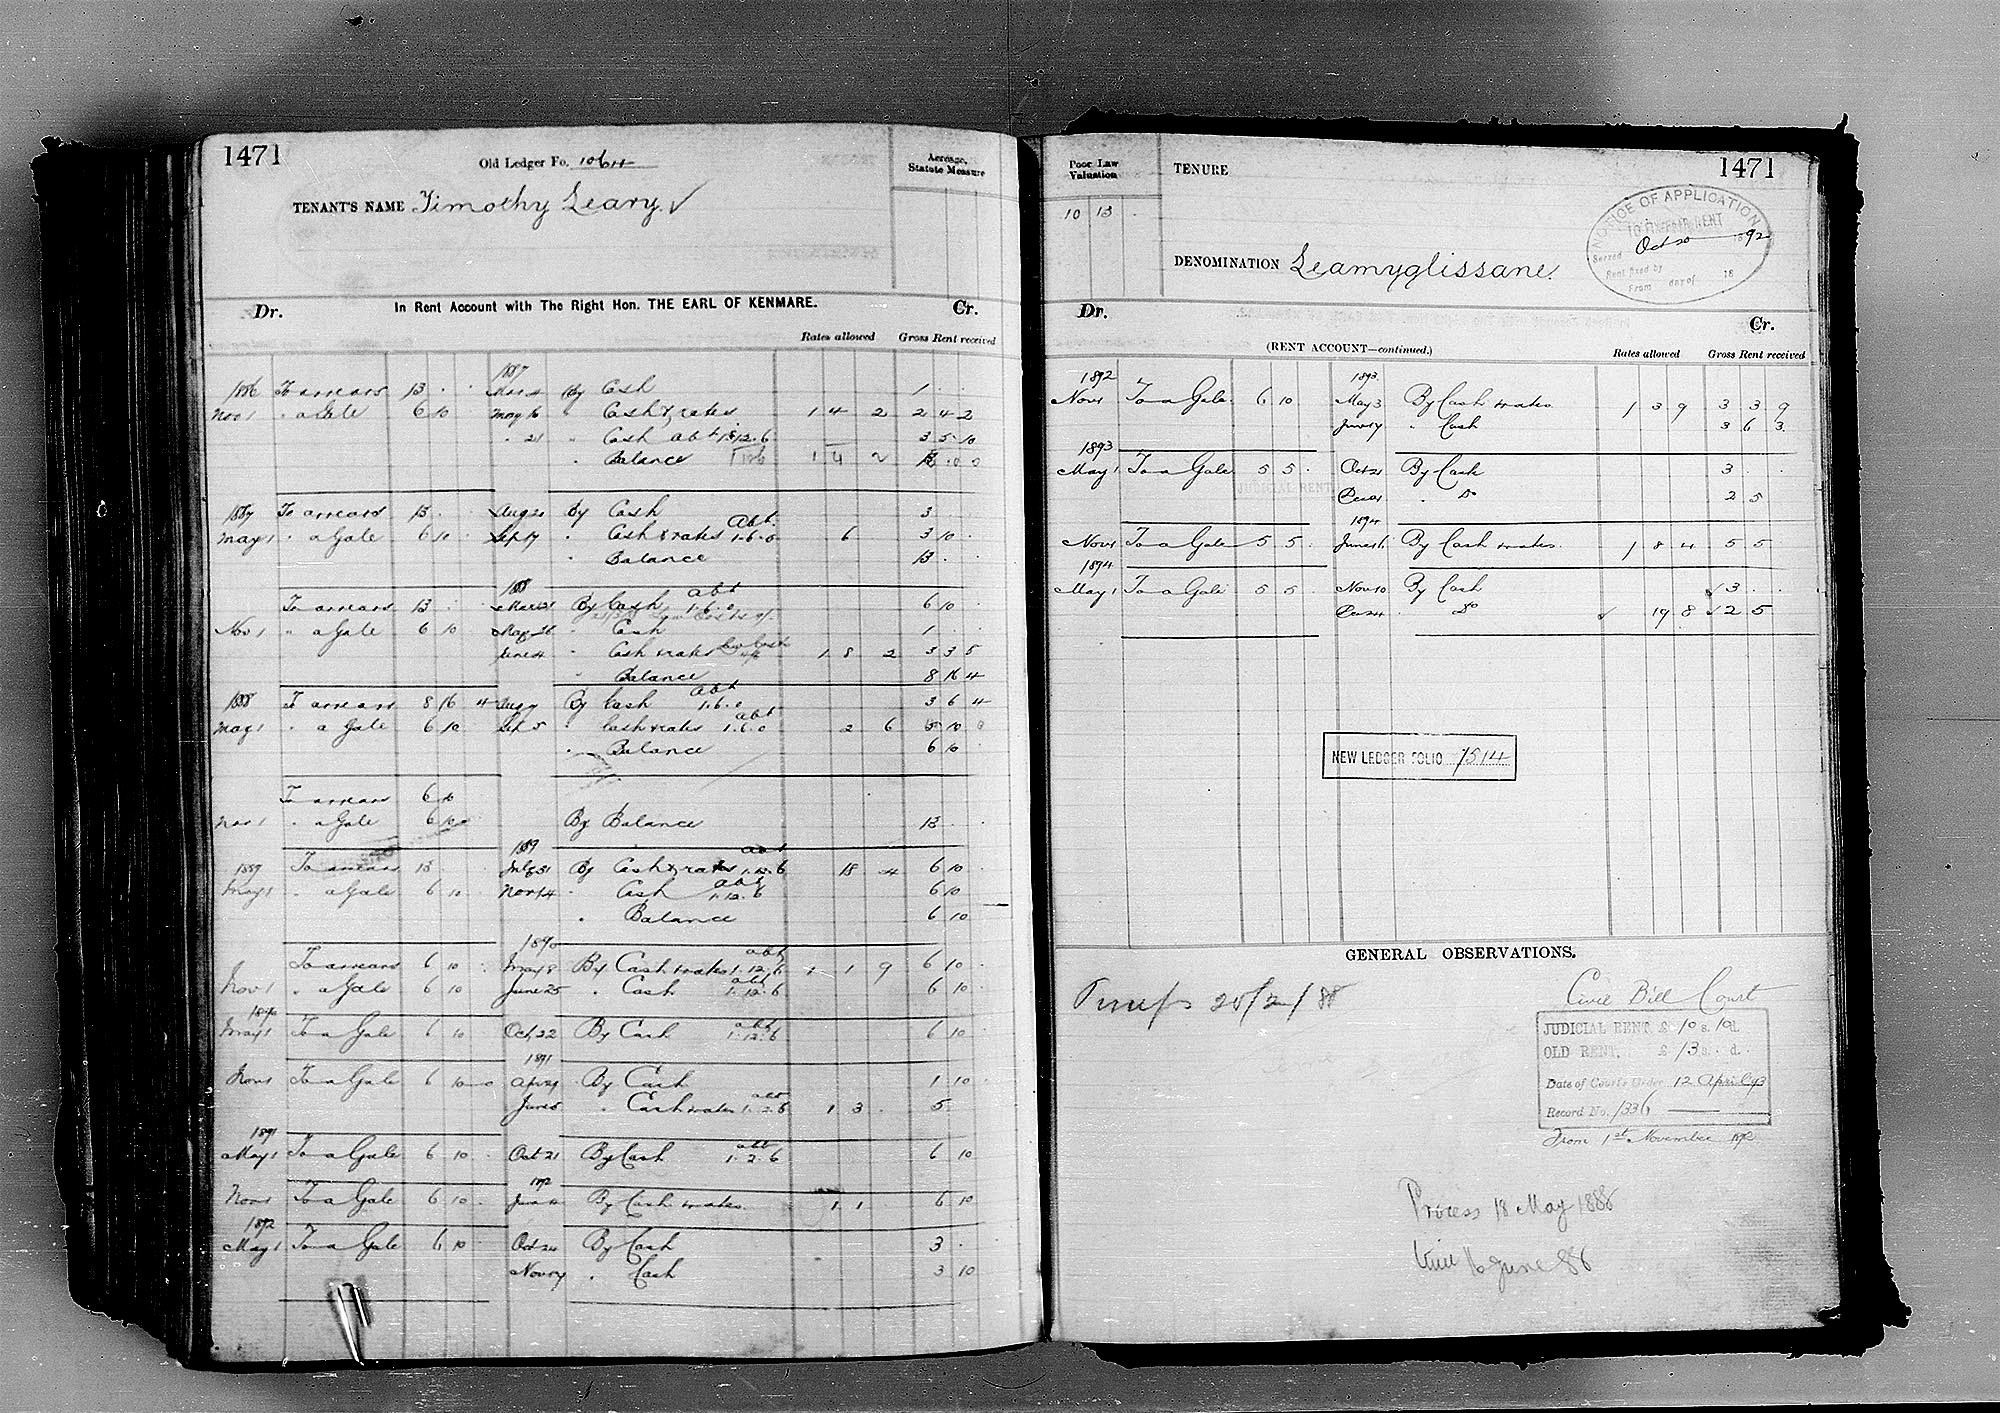 1471
Old Ledger Fo. 1064
Acreage, Statute Measure
TENANT'S NAME Timothy Leary ✓
Dr. In Rent Account with The Right Hon. THE EARL OF KENMARE. Cr.
Rates allowed Gross Rent received
1887
1886 To arrears 13 . . By Cash 1 . .
Nov 1 " a Gale 6 10 . May 16 " Cash & rates 1 4 2 2 4 2
" 21 " Cash abt 1.12.6 3 5 10
" Balance 1 4 2
1887 To arrears 13 . Aug 21 By Cash 3 . .
May 1 " a Gale 6 10 . Sep 17 " Cash & rates abt 1.6.0 6 3 10 .
" Balance 13 .
1888
To arrears 13 . . By Cash abt 1.6.0 6 10 .
Nov 1 " a Gale 6 10 May 26 " Cash 1 . .
June 4 " Cash & rates 1 8 2 3 3 5
" Balance 8 16 4
1888 To arrears 8 16 4 Aug 9 By Cash abt 1.6.0 3 6 4
May 1 " a Gale 6 10 Sep 5 " Cash & rates abt 1.6.0 2 6 5 10 0
" Balance 6 10
To arrears 6 10
Nov 1 " a Gale 6 10 By Balance 13 . .
1889
1889 To arrears 13 July 31 By Cash & rates abt 1.12.6 18 4 6 10 .
May 1 " a Gale 6 10 Nov 14 " Cash abt 1.12.6 6 10
" Balance 6 10
1890
To arrears 6 10 May 8 By Cash & rates abt 1.12.6 1 1 9 6 10 .
Nov 1 " a Gale 6 10 June 25 " Cash abt 1.12.6 6 10
1890
May 1 To a Gale 6 10 Oct 22 By Cash abt 1.12.6 6 10
1891
Nov 1 To a Gale 6 10 0 Apr 29 By Cash 1 10 .
June 5 " Cash & rates abt 1.2.6 1 3 . 5 .
1891
May 1 To a Gale 6 10 . Oct 21 By Cash abt 1.2.6 6 10
1892
Nov 1 To a Gale 6 10 . June 4 By Cash & rates 1 1 . 6 10
1892
May 1 To a Gale 6 10 . Oct 24 By Cash 3 .
Nov 19 " Cash 3 10
Poor Law Valuation
10 13 .
TENURE
1471
NOTICE OF APPLICATION
TO FIX FAIR RENT
Served Oct 20 1892
Rent fixed by
From day of 18
DENOMINATION Leamyglissane
Dr. Cr.
(RENT ACCOUNT—continued.)
Rates allowed Gross Rent received
1892 1893
Nov 1 To a Gale 6 10 . May 3 By Cash & rates 1 3 9 3 3 9
June 17 " Cash 3 6 3
1893
May 1 To a Gale 5 5 . Oct 21 By Cash 3 . .
JUDICIAL RENT
" Do 2 5
1894
Nov 1 To a Gale 5 5 . June 16 By Cash & rates 1 8 4 5 5
1894
May 1 To a Gale 5 5 . Nov 10 By Cash ✓ 3 . .
Do ✓ 19 8 ✓ 2 5
NEW LEDGER FOLIO 1514
GENERAL OBSERVATIONS.
Civil Bill Court
JUDICIAL RENT, £ 10 s. 10 d.
OLD RENT, £ 13 s. . d.
Date of Courts Order 12 April 93
Record No. 1336
From 1st November 1892
Process 18 May 1886
6 June 86